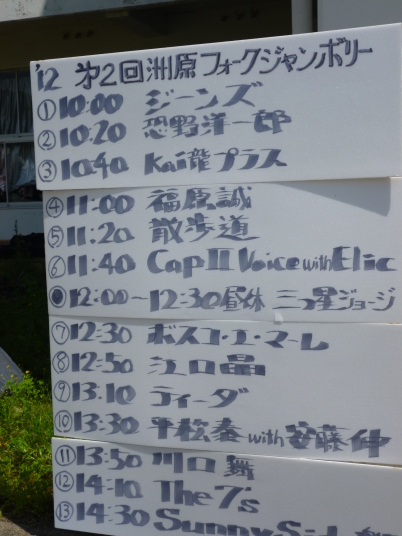 '12 第2回洲原フォークジャンボリー
① 10:00 ジーンズ
② 10:20 恐野洋一郎
③ 10:40 Kai龍プラス
④ 11:00 福原誠
⑤ 11:20 散歩道
⑥ 11:40 Cap II Voice with Elic
● 12:00〜12:30 昼休 三つ星ジョージ
⑦ 12:30 ボスコ・エ・マーレ
⑧ 12:50 江口晶
⑨ 13:10 ティーダ
⑩ 13:30 平松奏 with 安藤伸
⑪ 13:50 川口舞
⑫ 14:10 The 7's
⑬ 14:30 Sunny